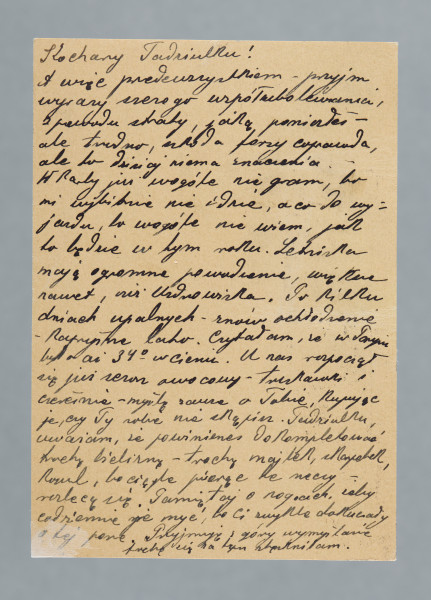 Kochany Tadziulku!
A więc przedewszystkiem - przyjm
wyrazy szczerego współubolewania,
z powodu straty, jaką poniosłeś -
ale trudno, szkoda forsy coprawda,
ale to dzisiaj niema znaczenia. -
W karty już wogóle nie gram, bo
mi wybitnie nie idzie, a co do wy-
jazdu, to wogóle nie wiem, jak
to będzie w tym roku. Letniska
mają ogromne powodzenie, większe
nawet, niż Uzdrowiska. Po kilku
dniach upalnych - znów ochłodzenie
- Kapryśne lato. Czytałam, że w Paryżu
było aż 34° w cieniu. U nas rozpoczął
się już sezon owocowy - truskawki i
czereśnie - myślę zawsze o Tobie, kupując
je, czy Ty sobie nie skąpisz. Tadziulku,
uważam, że powinieneś dokompletować
trochę bielizny - trochę majtek, skarpetek,
koszul, bo ciągle piorąc te rzeczy -
rozlecą się. Pamiętaj o nogach, żeby
codziennie je myć, bo Ci zwykle dokuczały
o tej porze. Przyjmuję z góry wymyślanie
żeś się na tym